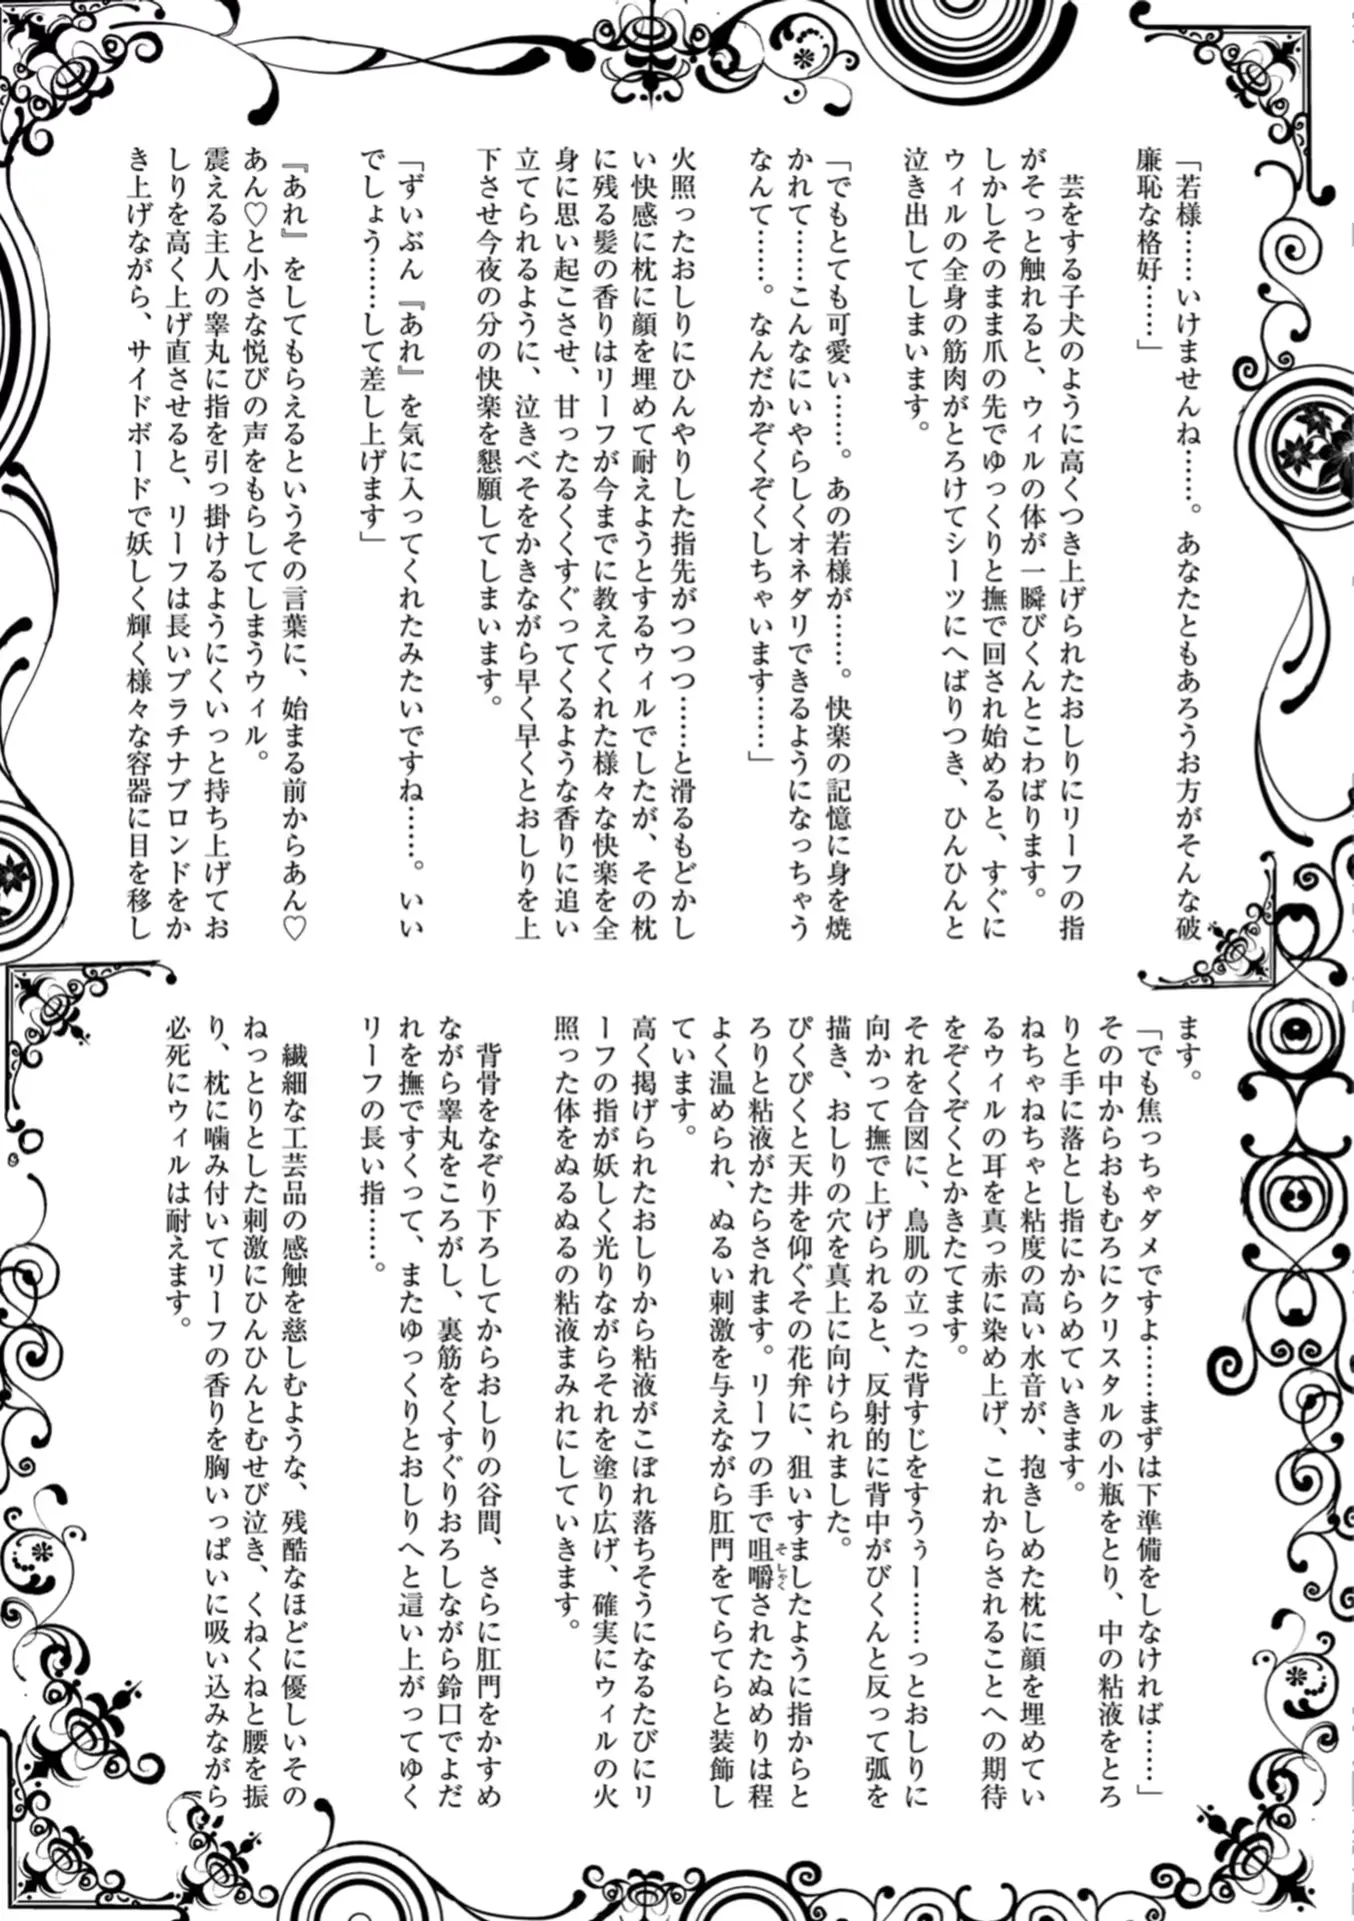 「若様……いけませんね……。あなたともあろうお方がそんな破
廉恥な格好……」
芸をする子犬のように高くつき上げられたおしりにリーフの指
がそっと触れると、ウィルの体が一瞬びくんとこわばります。
しかしそのまま爪の先でゆっくりと撫で回され始めると、すぐに
ウィルの全身の筋肉がとろけてシーツにへばりつき、ひんひんと
泣き出してしまいます。
「でもとても可愛い……。あの若様が……。快楽の記憶に身を焼
かれて……こんなにいやらしくオネダリできるようになっちゃう
なんて……。なんだかぞくぞくしちゃいます……」
火照ったおしりにひんやりした指先がつつつ……と滑るもどかし
い快感に枕に顔を埋めて耐えようとするウィルでしたが、その枕
に残る髪の香りはリーフが今までに教えてくれた様々な快楽を全
身に思い起こさせ、甘ったるくくすぐってくるような香りに追い
立てられるように、泣きべそをかきながら早く早くとおしりを上
下させ今夜の分の快楽を懇願してしまいます。
「ずいぶん『あれ』を気に入ってくれたみたいですね……。いい
でしょう……して差し上げます」
『あれ』をしてもらえるというその言葉に、始まる前からあん♡
あん♡と小さな悦びの声をもらしてしまうウィル。
震える主人の睾丸に指を引っ掛けるようにくいっと持ち上げてお
しりを高く上げ直させると、リーフは長いプラチナブロンドをか
き上げながら、サイドボードで妖しく輝く様々な容器に目を移し
ます。
「でも焦っちゃダメですよ……まずは下準備をしなければ……」
その中からおもむろにクリスタルの小瓶をとり、中の粘液をとろ
りと手に落とし指にからめていきます。
ねちゃねちゃと粘度の高い水音が、抱きしめた枕に顔を埋めてい
るウィルの耳を真っ赤に染め上げ、これからされることへの期待
をぞくぞくとかきたてます。
それを合図に、鳥肌の立った背すじをすうぅー……っとおしりに
向かって撫で上げられると、反射的に背中がびくんと反って弧を
描き、おしりの穴を真上に向けられました。
ぴくぴくと天井を仰ぐその花弁に、狙いすましたように指からと
ろりと粘液がたらされます。リーフの手で咀嚼されたぬめりは程
そしゃく
よく温められ、ぬるい刺激を与えながら肛門をてらてらと装飾し
ています。
高く掲げられたおしりから粘液がこぼれ落ちそうになるたびにリ
ーフの指が妖しく光りながらそれを塗り広げ、確実にウィルの火
照った体をぬるぬるの粘液まみれにしていきます。
背骨をなぞり下ろしてからおしりの谷間、さらに肛門をかすめ
ながら睾丸をころがし、裏筋をくすぐりおろしながら鈴口でよだ
れを撫ですくって、またゆっくりとおしりへと這い上がってゆく
リーフの長い指……。
繊細な工芸品の感触を慈しむような、残酷なほどに優しいその
ねっとりとした刺激にひんひんとむせび泣き、くねくねと腰を振
り、枕に噛み付いてリーフの香りを胸いっぱいに吸い込みながら
必死にウィルは耐えます。